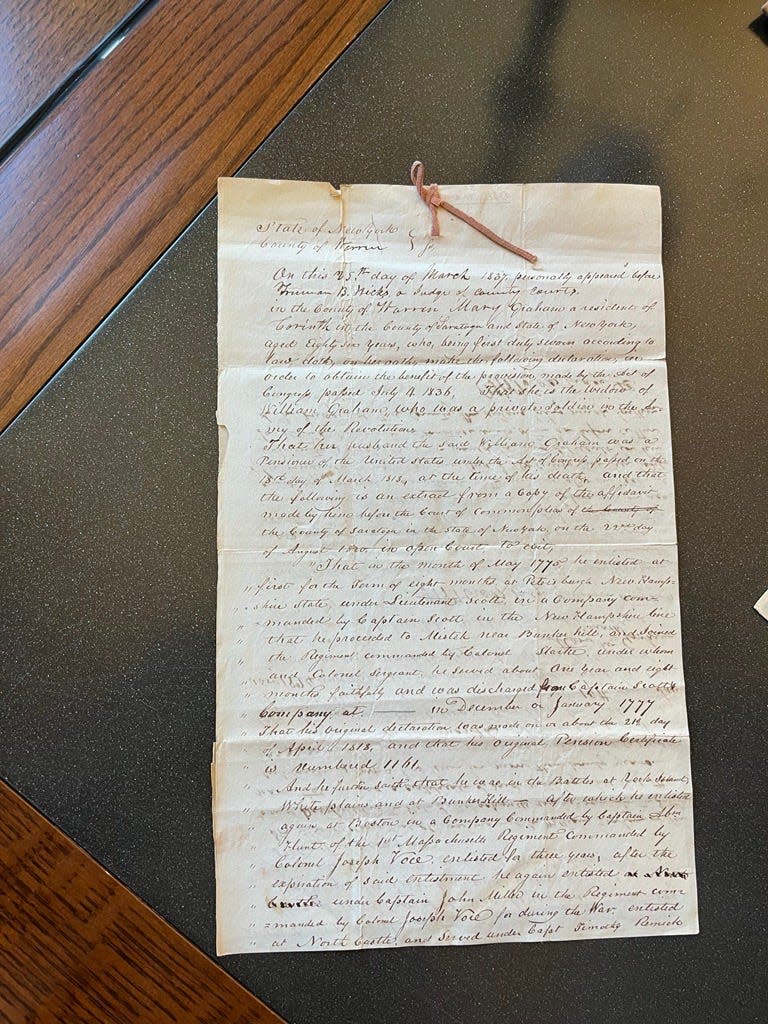 State of New York
County of Warren } ss
On this 25th day of March 1837 personally appeared before
Truman B. Hicks a Judge of County Courts
in the County of Warren Mary Graham a resident of
Corinth in the County of Saratoga and State of New York,
aged Eighty six Years, who, being first duly sworn according to
law, doth, on her oath, make the following declaration, in
order to obtain the benefit of the provision made by the Act of
Congress passed July 4 1836, That she is the widow of
William Graham, who was a private Soldier in the Ar-
my of the Revolution
That her husband the said William Graham was a
Pensioner of the United States under the Act of Congress passed on the
18th day of March 1818, at the time of his death, and that
the following is an extract from a Copy of the affidavit
made by him before the Court of Common pleas of the County of
the County of Saratoga in the State of New York on the 22nd day
of August 1820 in open Court, to wit,
"That in the month of May 1775 he enlisted at
" first for the Term of eight months at Peterburgh New Hamp-
" shire State, under Lieutenant Scott, in a Company com-
" =manded by Captain Scott in the New Hampshire line
" that he proceeded to Mistik near Bunker hill, and Joined
" the Regiment commanded by Colonel Starke, under whom
" and Colonel Sergeant, he served about One Year and eight
" months faithfully and was discharged from Captain Scott's
" Company at —— in December or January 1777
" That his original declaration was made on or about the day
" of April, 1818, and that his Original Pension Certificate
" is Numbered 1161.
" And he further saith that he was in the Battles at York Island,
" White plains and at Bunker Hill — after which he enlisted
" again, at Boston in a Company Commanded by Captain
" Hunt of the 1st Massachusetts Regiment Commanded by
" Colonel Joseph Voce, enlisted for three years, after the
" expiration of said enlistment he again enlisted at
" under Captain John Mills in the Regiment com-
" =manded by Colonel Joseph Voce for during the War, enlisted
" at North Castle, and served under Capt Timothy Remick